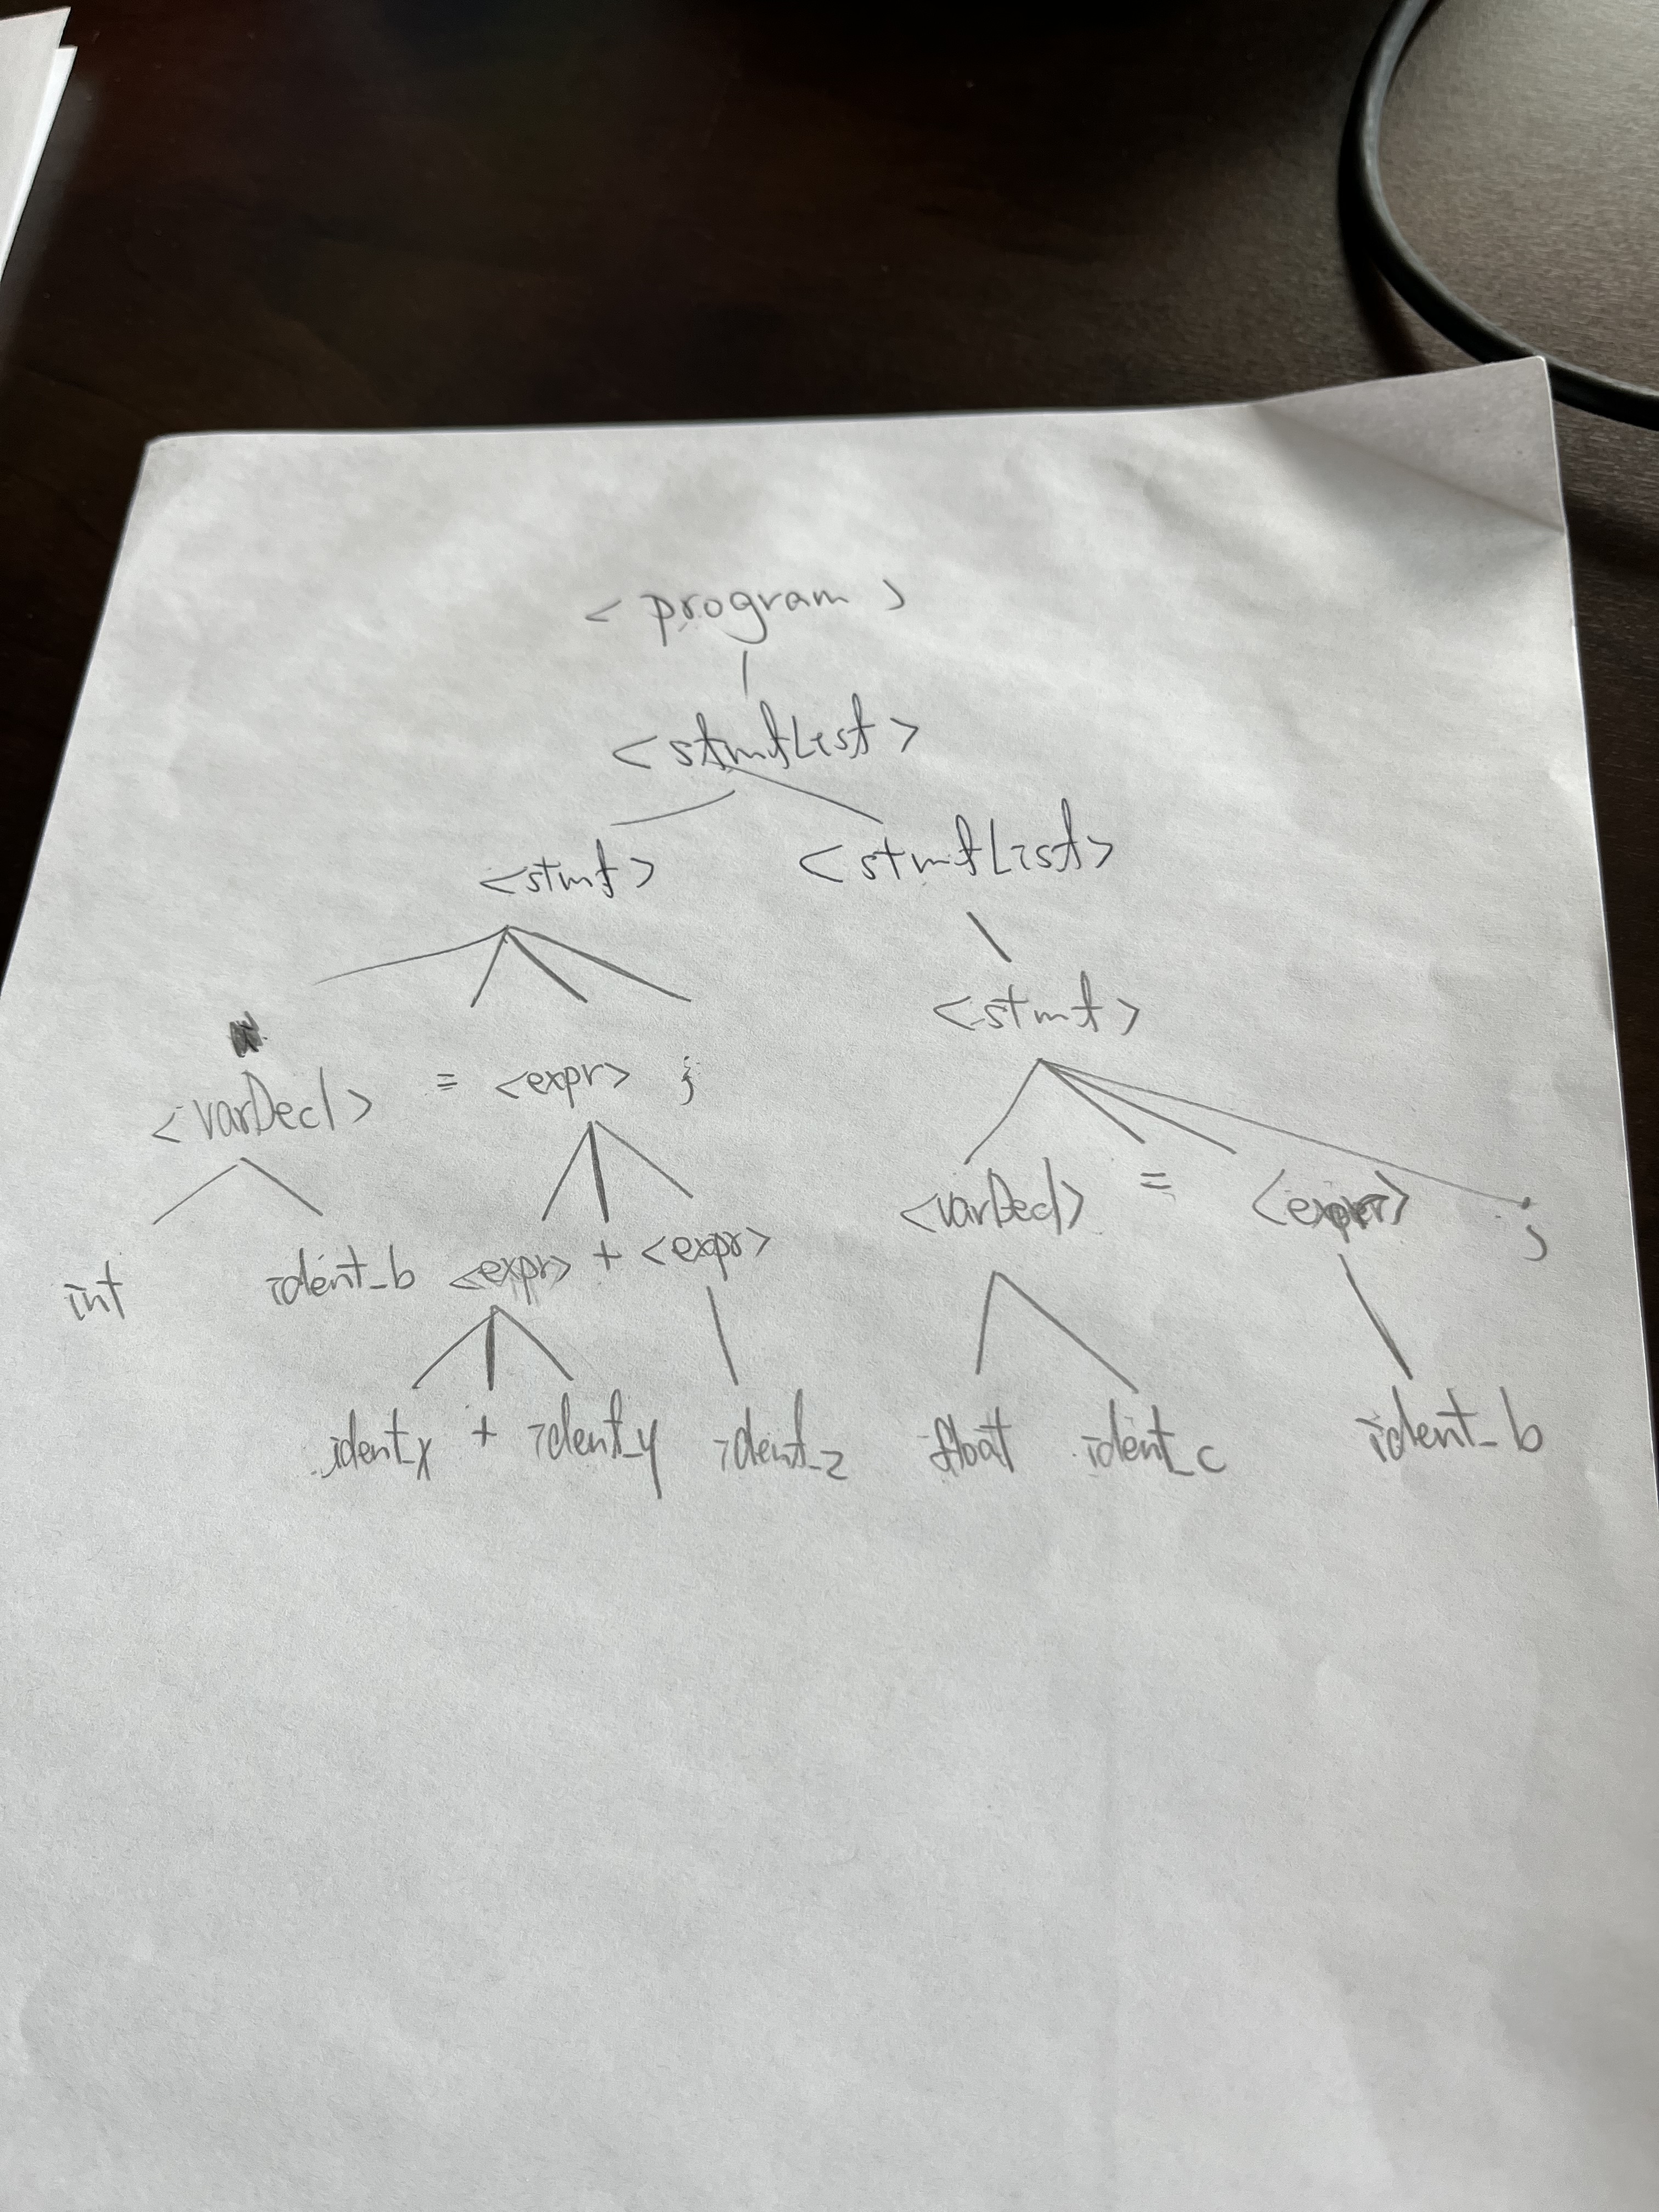 <program>
<stmtList>
<stmt> <stmtList>
<stmt>
<varDecl> = <expr> ;
<varDecl> = <expr> ;
int ident_b <expr> + <expr>
ident_x + ident_y ident_z float ident_c ident_b